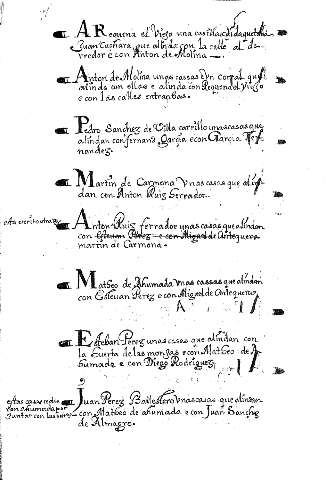 A Requena el Viejo una casilla
Juan Cuchara que alinda con la calle al de
rredor e con Anton de Molina
Anton de Molina unas casas y un corral que
alinda con ellas e alinda con Requena el Viejo
e con las calles entranbas.
Pedro Sanchez de Villa carrillo unas casas que
alindan con fernan Garcia e con Garcia
nandez.
Martin de Carmona Vnas casas que alin
dan con Anton Ruiz Serrador.
Anton Ruiz ferrador unas casas que alindan
con Esteuan Perez e con Miguel de Antequera
martin de Carmona.
Mateo de Ahumada vnas cassas que alindan
con Esteuan Perez e con Miguel de Antequera
Esteban Perez unas casas que alindan con
la huerta de las monjas e con Matheo de
humada e con Diego Rodriguez
estas casas
Juan Perez Ballestero vnas casas que alindan
con Matheo de ahumada e con Juan Sanchez
de Almagre.